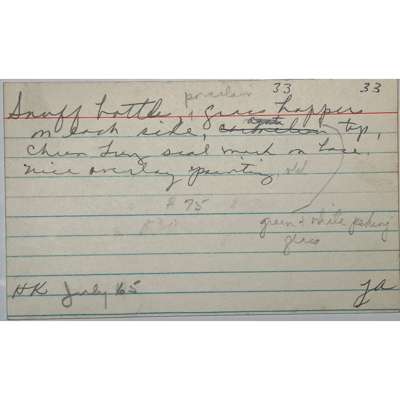 33 33
porcelain
Snuff bottle, grass hoppers
agate
on each side, carnelian top,
Chien Lung seal mark on base.
nice overlay painting, old
75
green & white peking
glass
HK July 65